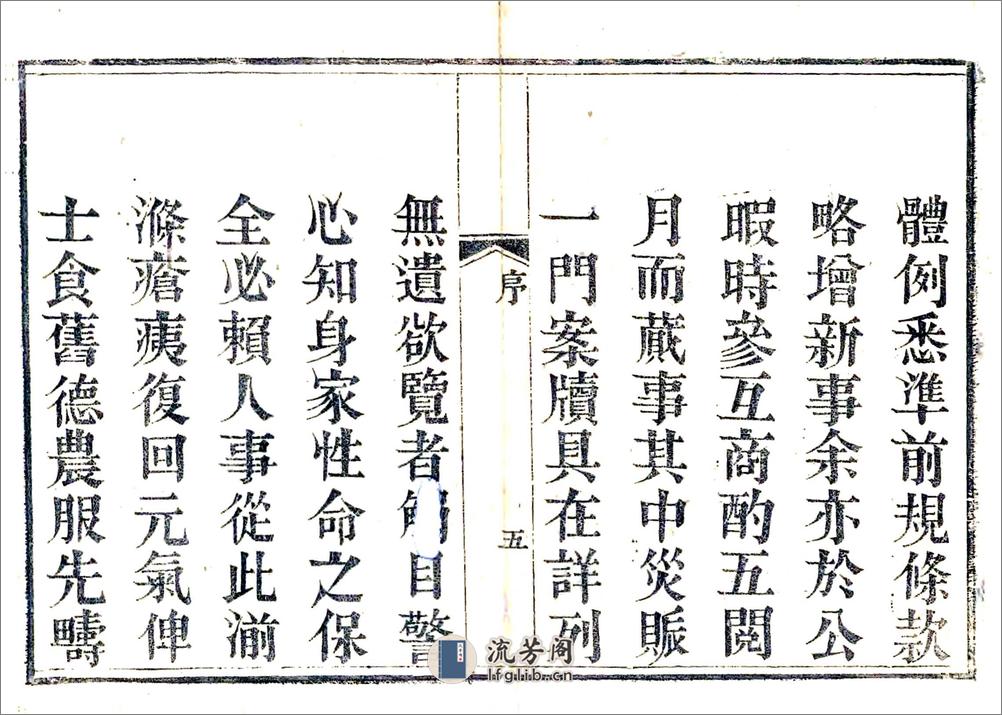 體例悉準前規條款
略增新事余亦於公
暇時參互商酌五閱
月而蕆事其中災賑
一門案牘具在詳列
序 五
無遺欲覽者目警
心知身家性命之保
全必賴人事從此湔
滌瘡痍復回元氣俾
士食舊德農服先疇
流芳阁
lfglib.cn